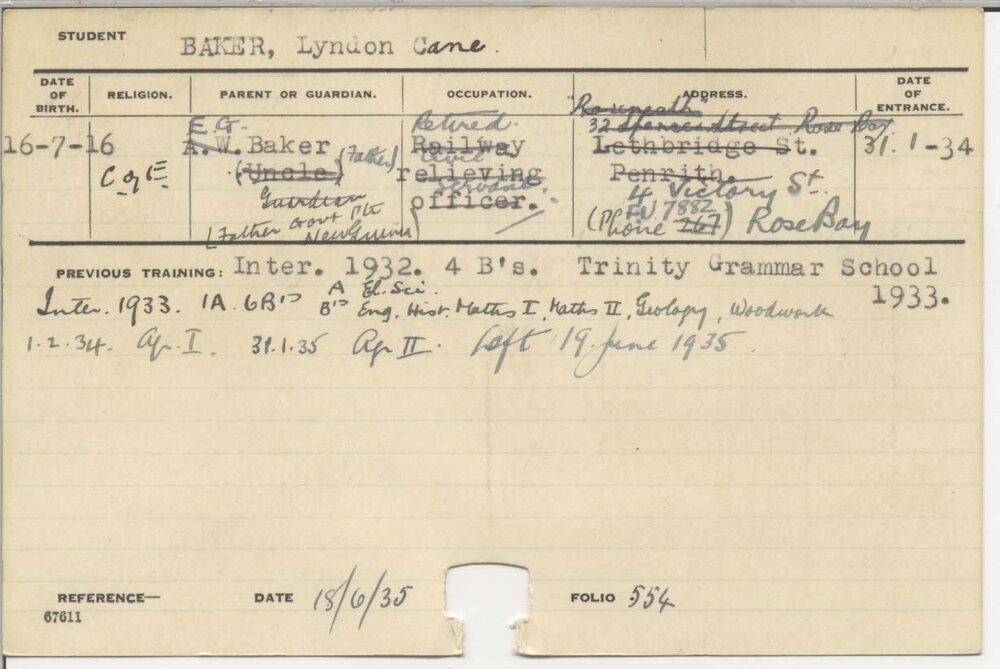 STUDENT BAKER, Lyndon Cane.
DATE OF BIRTH. RELIGION. PARENT OR GUARDIAN. OCCUPATION. ADDRESS. DATE OF ENTRANCE.
"Roseneath"
E.G. Retired. 32 Spencer Street Rose Bay
16-7-16 A.W. Baker (Father) Railway Lethbridge St. 31.1-34
Civil
C of E (Uncle) relieving Penrith.
Servant. 4 Victory St.
Guardian officer. FU 7882
(Father Govt Ptr New Guinea) (Phone 267) Rose Bay
PREVIOUS TRAINING: Inter. 1932. 4 B's. Trinity Grammar School
1933.
Inter. 1933. 1A. 6B's A El. Sci.
B's Eng. Hist. Maths I, Maths II, Geology, Woodwork
1.2.34. Ag. I. 31.1.35 Ag II. Left 19 June 1935
REFERENCE— DATE 18/6/35 FOLIO 554
67611